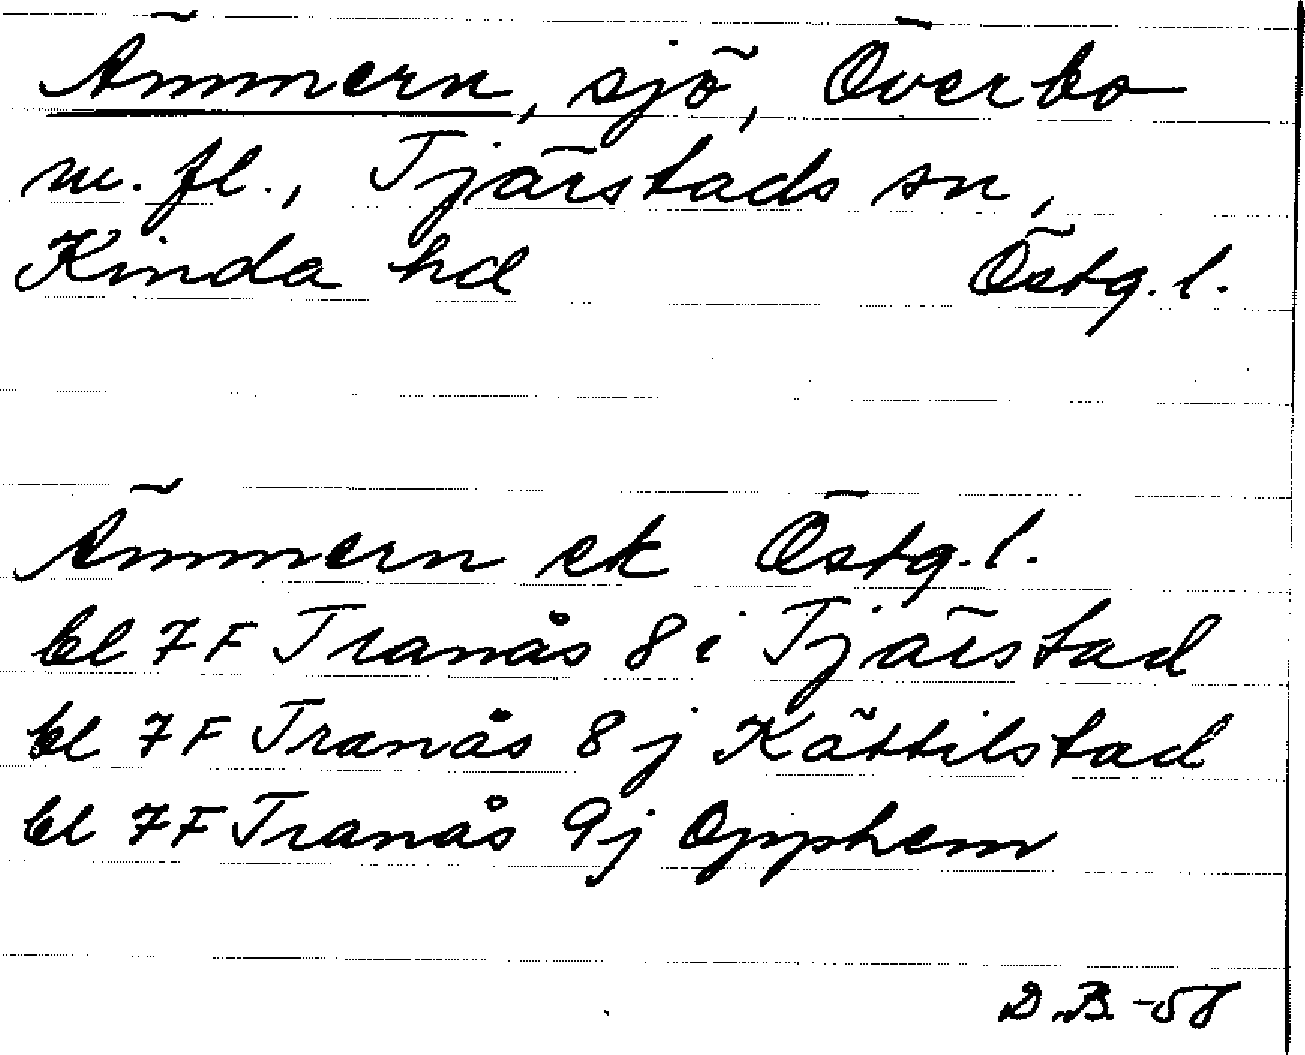 Ämmern, sjö, Överbo
m. fl., Tjärstads sn,
Kinda hd Östg. l.
Ämmern ek Östg. l.
bl 7F Tranås 8 i Tjärstad
bl 7F Tranås 8 j Kättilstad
bl 7F Tranås 9j Opphem
D.B. -58